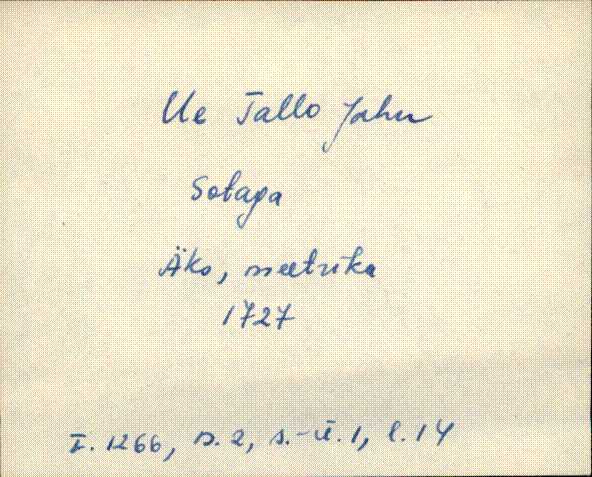 Ue Tallo Jahn
Sotaga
Äko, meetrika
1727
I. 1266, n. 2, s.-ü. 1, l. 14